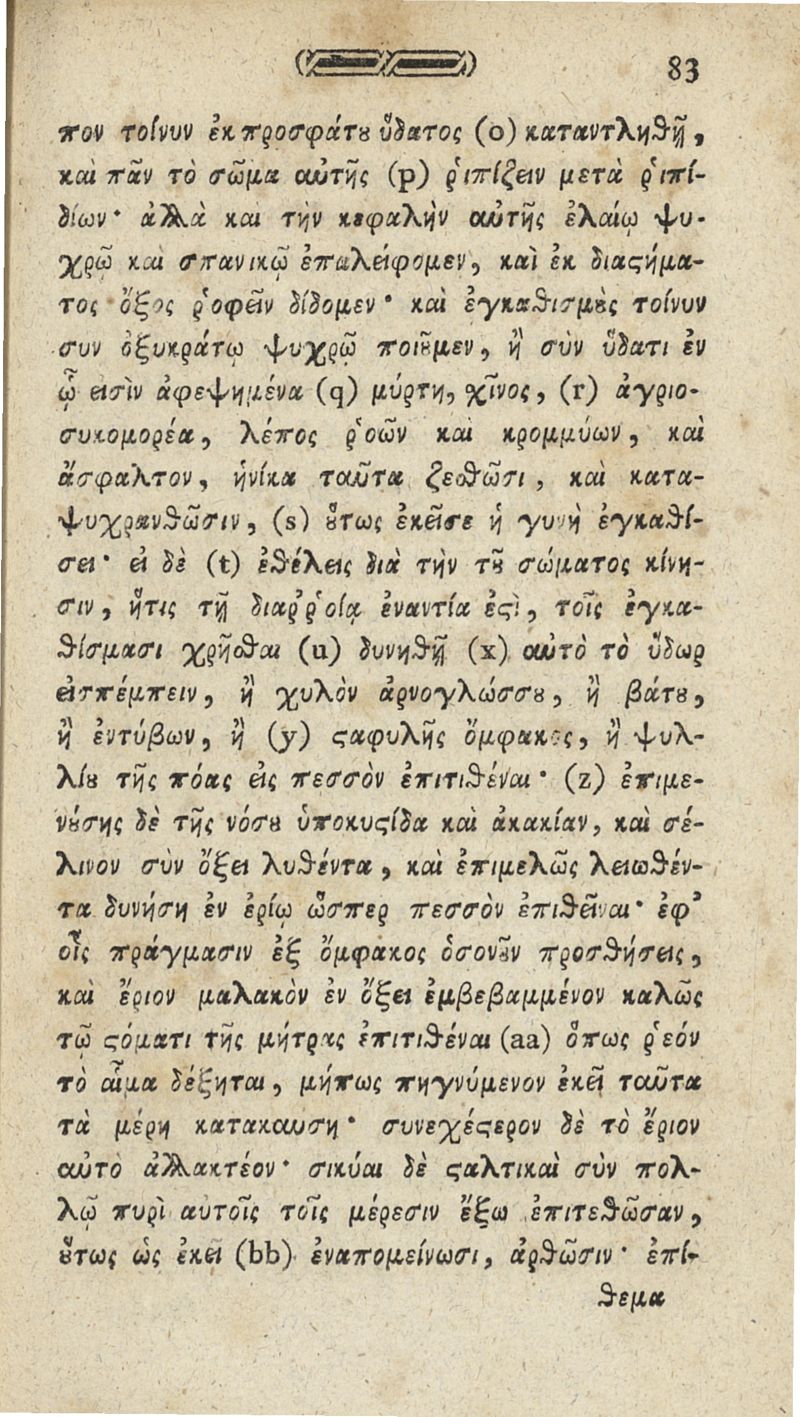 83
πον τοίνυν ἐκ προσφάτȣ ὕδατος (o) καταντληθῇ,
καὶ πᾶν τὸ σῶμα αὐτῆς (p) ῥιπίζειν μετὰ ῥιπί-
δίων· ἀλλὰ καὶ τὴν κεφαλὴν αὐτῆς ἐλαίῳ ψυ-
χρῷ καὶ σπανικῷ ἐπαλείφομεν, καὶ ἐκ διαϛήμα-
τος ὄξος ῥοφεῖν δίδομεν· καὶ ἐγκαθισμȣ̀ς τοίνυν
συν ὀξυκράτῳ ψυχρῷ ποιȣ͂μεν, ἢ σὺν ὕδατι ἐν
ᾧ εἰσὶν ἀφεψημένα (q) μύρτη, χῖνος, (r) ἀγριο-
συκομορέα, λέπος ῥοῶν καὶ κρομμύων, καὶ
ἄσφαλτον, ἡνίκα ταῦτα ζεσθῶσι, καὶ κατα-
ψυχρανθῶσιν, (s) ȣ̔́τως ἐκεῖσε ἡ γυνὴ ἐγκαθί-
σει· εἰ δὲ (t) ἐθέλεις διὰ τὴν τȣ͂ σώματος κίνη-
σιν, ἥτις τῇ διαῤῥοίᾳ ἐναντία ἐϛὶ, τοῖς ἐγκα-
θίσμασι χρῆσθαι (u) δυνηθῇ (x) αὐτὸ τὸ ὕδωρ
εἰσπέμπειν, ἢ χυλὸν ἀρνογλώσσȣ, ἢ βάτȣ,
ἢ ἐντύβων, ἢ (y) ϛαφυλῆς ὄμφακος, ἢ ψυλ-
λίȣ τῆς πόας εἰς πεσσὸν ἐπιτιθέναι· (z) ἐπιμε-
νȣ́σης δὲ τῆς νόσȣ ὑποκυϛίδα καὶ ἀκακίαν, καὶ σέ-
λινον σὺν ὄξει λυθέντα, καὶ ἐπιμελῶς λειωθέν-
τα δυνήσῃ ἐν ἐρίῳ ὥσπερ πεσσὸν ἐπιθεῖναι· ἐφ᾽
οἷς πράγμασιν ἐξ ὄμφακος ὁσονȣ͂ν προσθήσεις,
καὶ ἔριον μαλακὸν ἐν ὄξει ἐμβεβαμμένον καλῶς
τῷ ϛόματι τῆς μήτρας ἐπιτιθέναι (aa) ὅπως ῥεόν
τὸ αἷμα δέξηται, μήπως πηγνύμενον ἐκεῖ ταῦτα
τὰ μέρη κατακαυσῃ· συνεχέϛερον δὲ τὸ ἔριον
αὐτὸ ἀλλακτέον· σικύαι δὲ ϛαλτικαὶ σὺν πολ-
λῷ πυρὶ αυτοῖς τοῖς μέρεσιν ἔξω ἐπιτεθῶσαν,
ȣ̔́τως ὡς ἐκεῖ (bb) ἐναπομείνωσι, ἀρθῶσιν· ἐπί-
θεμα